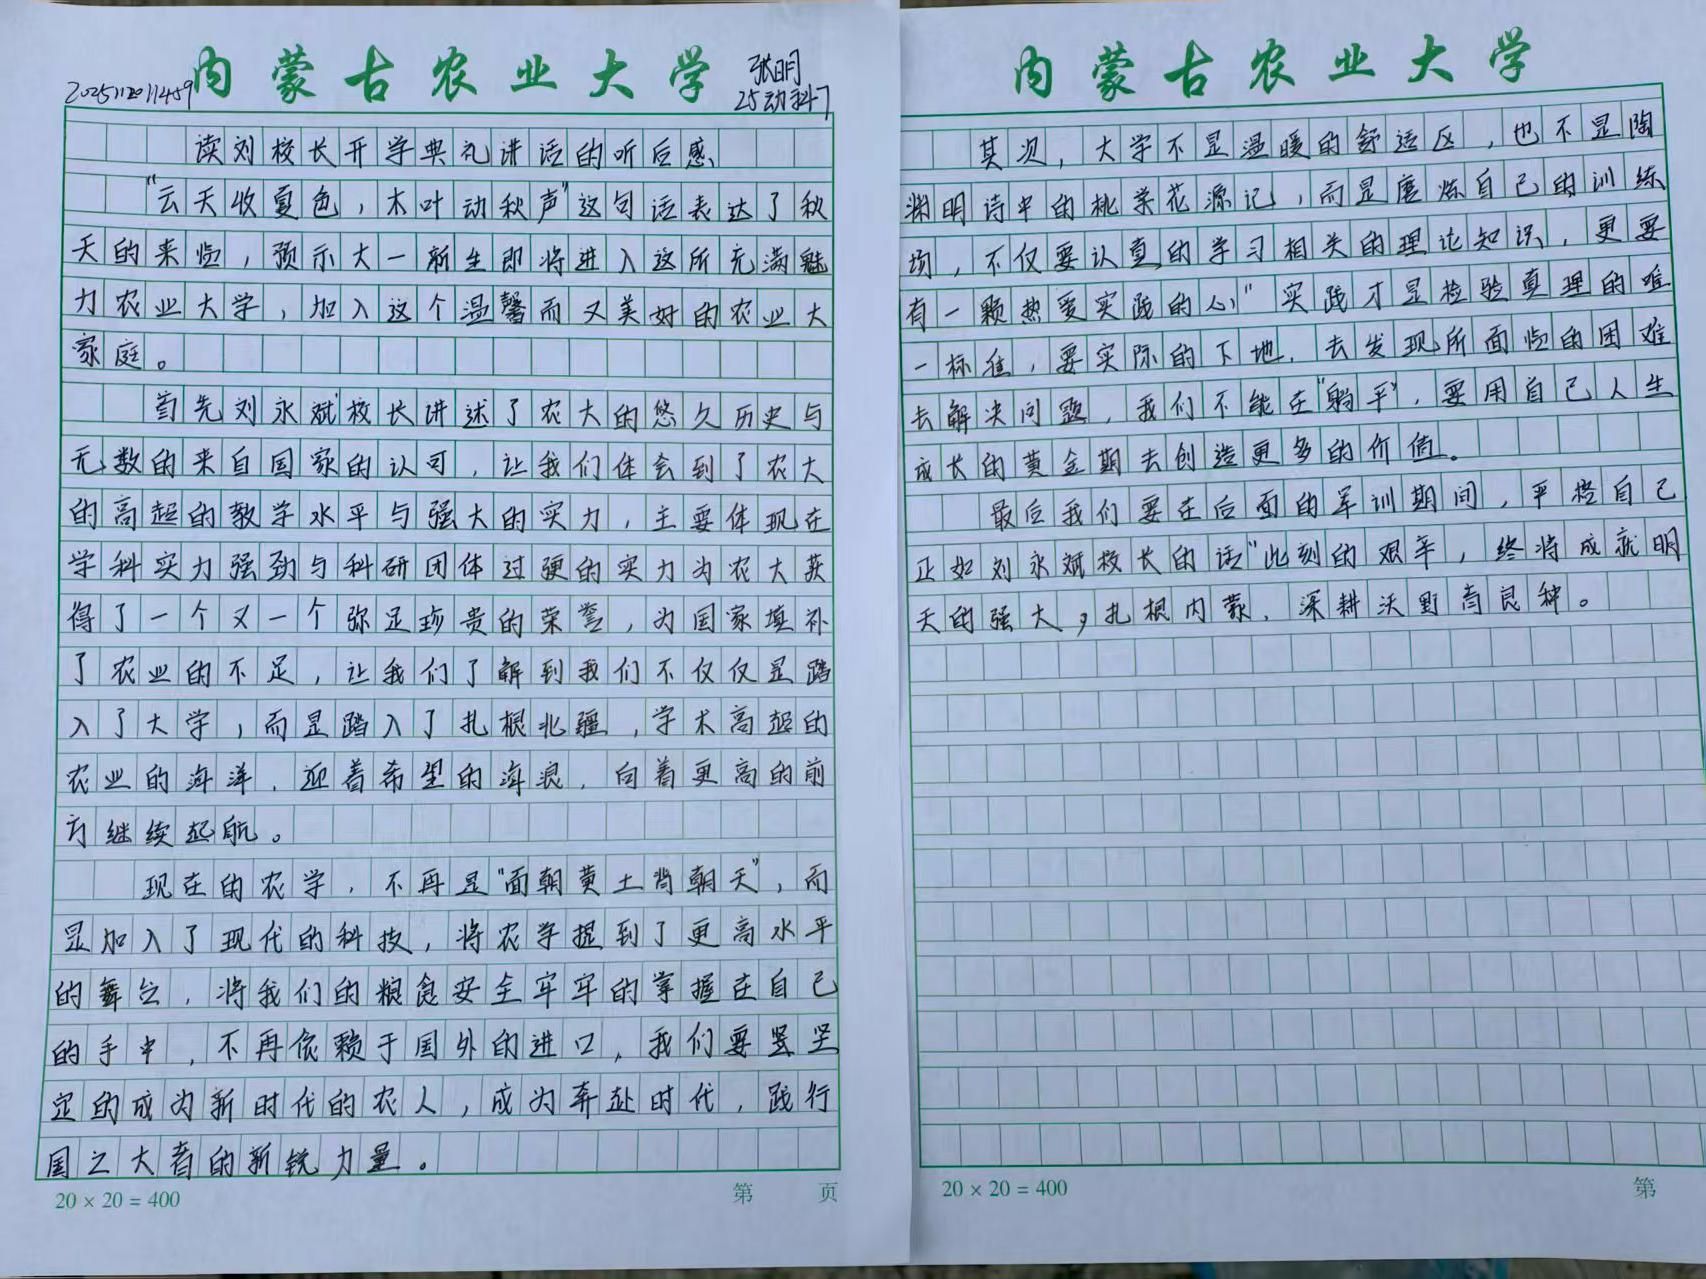 内蒙古农业大学
张明
2025112011459
25动科7
读刘校长开学典礼讲话的听后感
"云天收夏色，木叶动秋声"这句话表达了秋
天的来临，预示大一新生即将进入这所充满魅
力农业大学，加入这个温馨而又美好的农业大
家庭。
首先刘永斌校长讲述了农大的悠久历史与
无数的来自国家的认可，让我们体会到了农大
的高超的教学水平与强大的实力，主要体现在
学科实力强劲与科研团体过硬的实力为农大获
得了一个又一个弥足珍贵的荣誉，为国家填补
了农业的不足，让我们了解到我们不仅仅是踏
入了大学，而是踏入了扎根北疆，学术高超的
农业的海洋，迎着希望的海浪，向着更高的前
方继续起航。
现在的农学，不再是"面朝黄土背朝天"，而
是加入了现代的科技，将农学提到了更高水平
的舞台，将我们的粮食安全牢牢的掌握在自己
的手中，不再依赖于国外的进口，我们要坚坚
定的成为新时代的农人，成为奔赴时代，践行
国之大者的新锐力量。
20×20=400
第 页
内蒙古农业大学
其次，大学不是温暖的舒适区，也不是陶
渊明诗中的桃学花源记，而是磨炼自己的训练
场，不仅要认真的学习相关的理论知识，更要
有一颗热爱实践的心"实践才是检验真理的唯
一标准，要实际的下地，去发现所面临的困难
去解决问题，我们不能在"躺平"，要用自己人生
成长的黄金期去创造更多的价值。
最后我们要在后面的军训期间，严格自己
正如刘永斌校长的话"此刻的艰辛，终将成就明
天的强大，扎根内蒙，深耕沃野育良种。
20×20=400
第